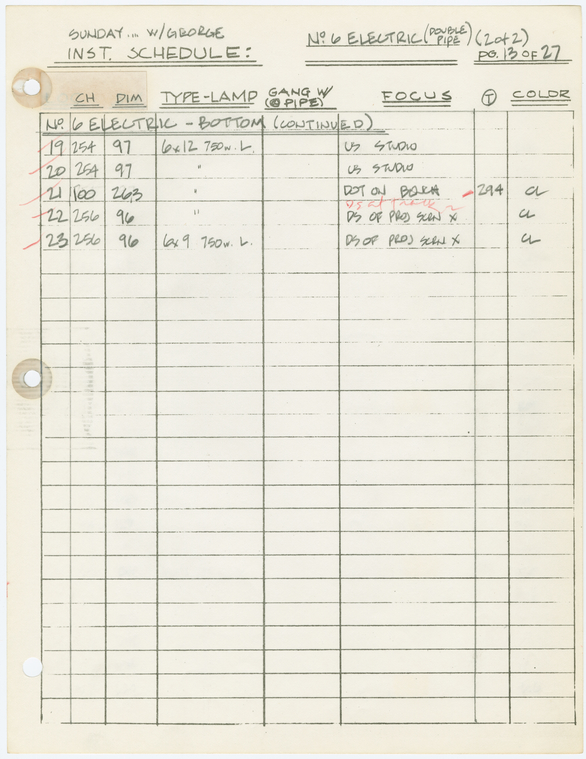 SUNDAY... W/GEORGE
INST. SCHEDULE:
No. 6 ELECTRIC (DOUBLE PIPE) (2 of 2)
PG. 13 OF 27
CH DIM TYPE-LAMP GANG W/ (@ PIPE) FOCUS T COLOR
No. 6 ELECTRIC - BOTTOM (CONTINUED)
19 254 97 6x12 750w. L. US STUDIO
20 254 97 " US STUDIO
21 100 263 " DOT ON BENCH 294 CL
DS at track 2
22 256 96 " DS OF PROJ SCRN X CL
23 256 96 6x9 750w. L. DS OF PROJ SCRN X CL